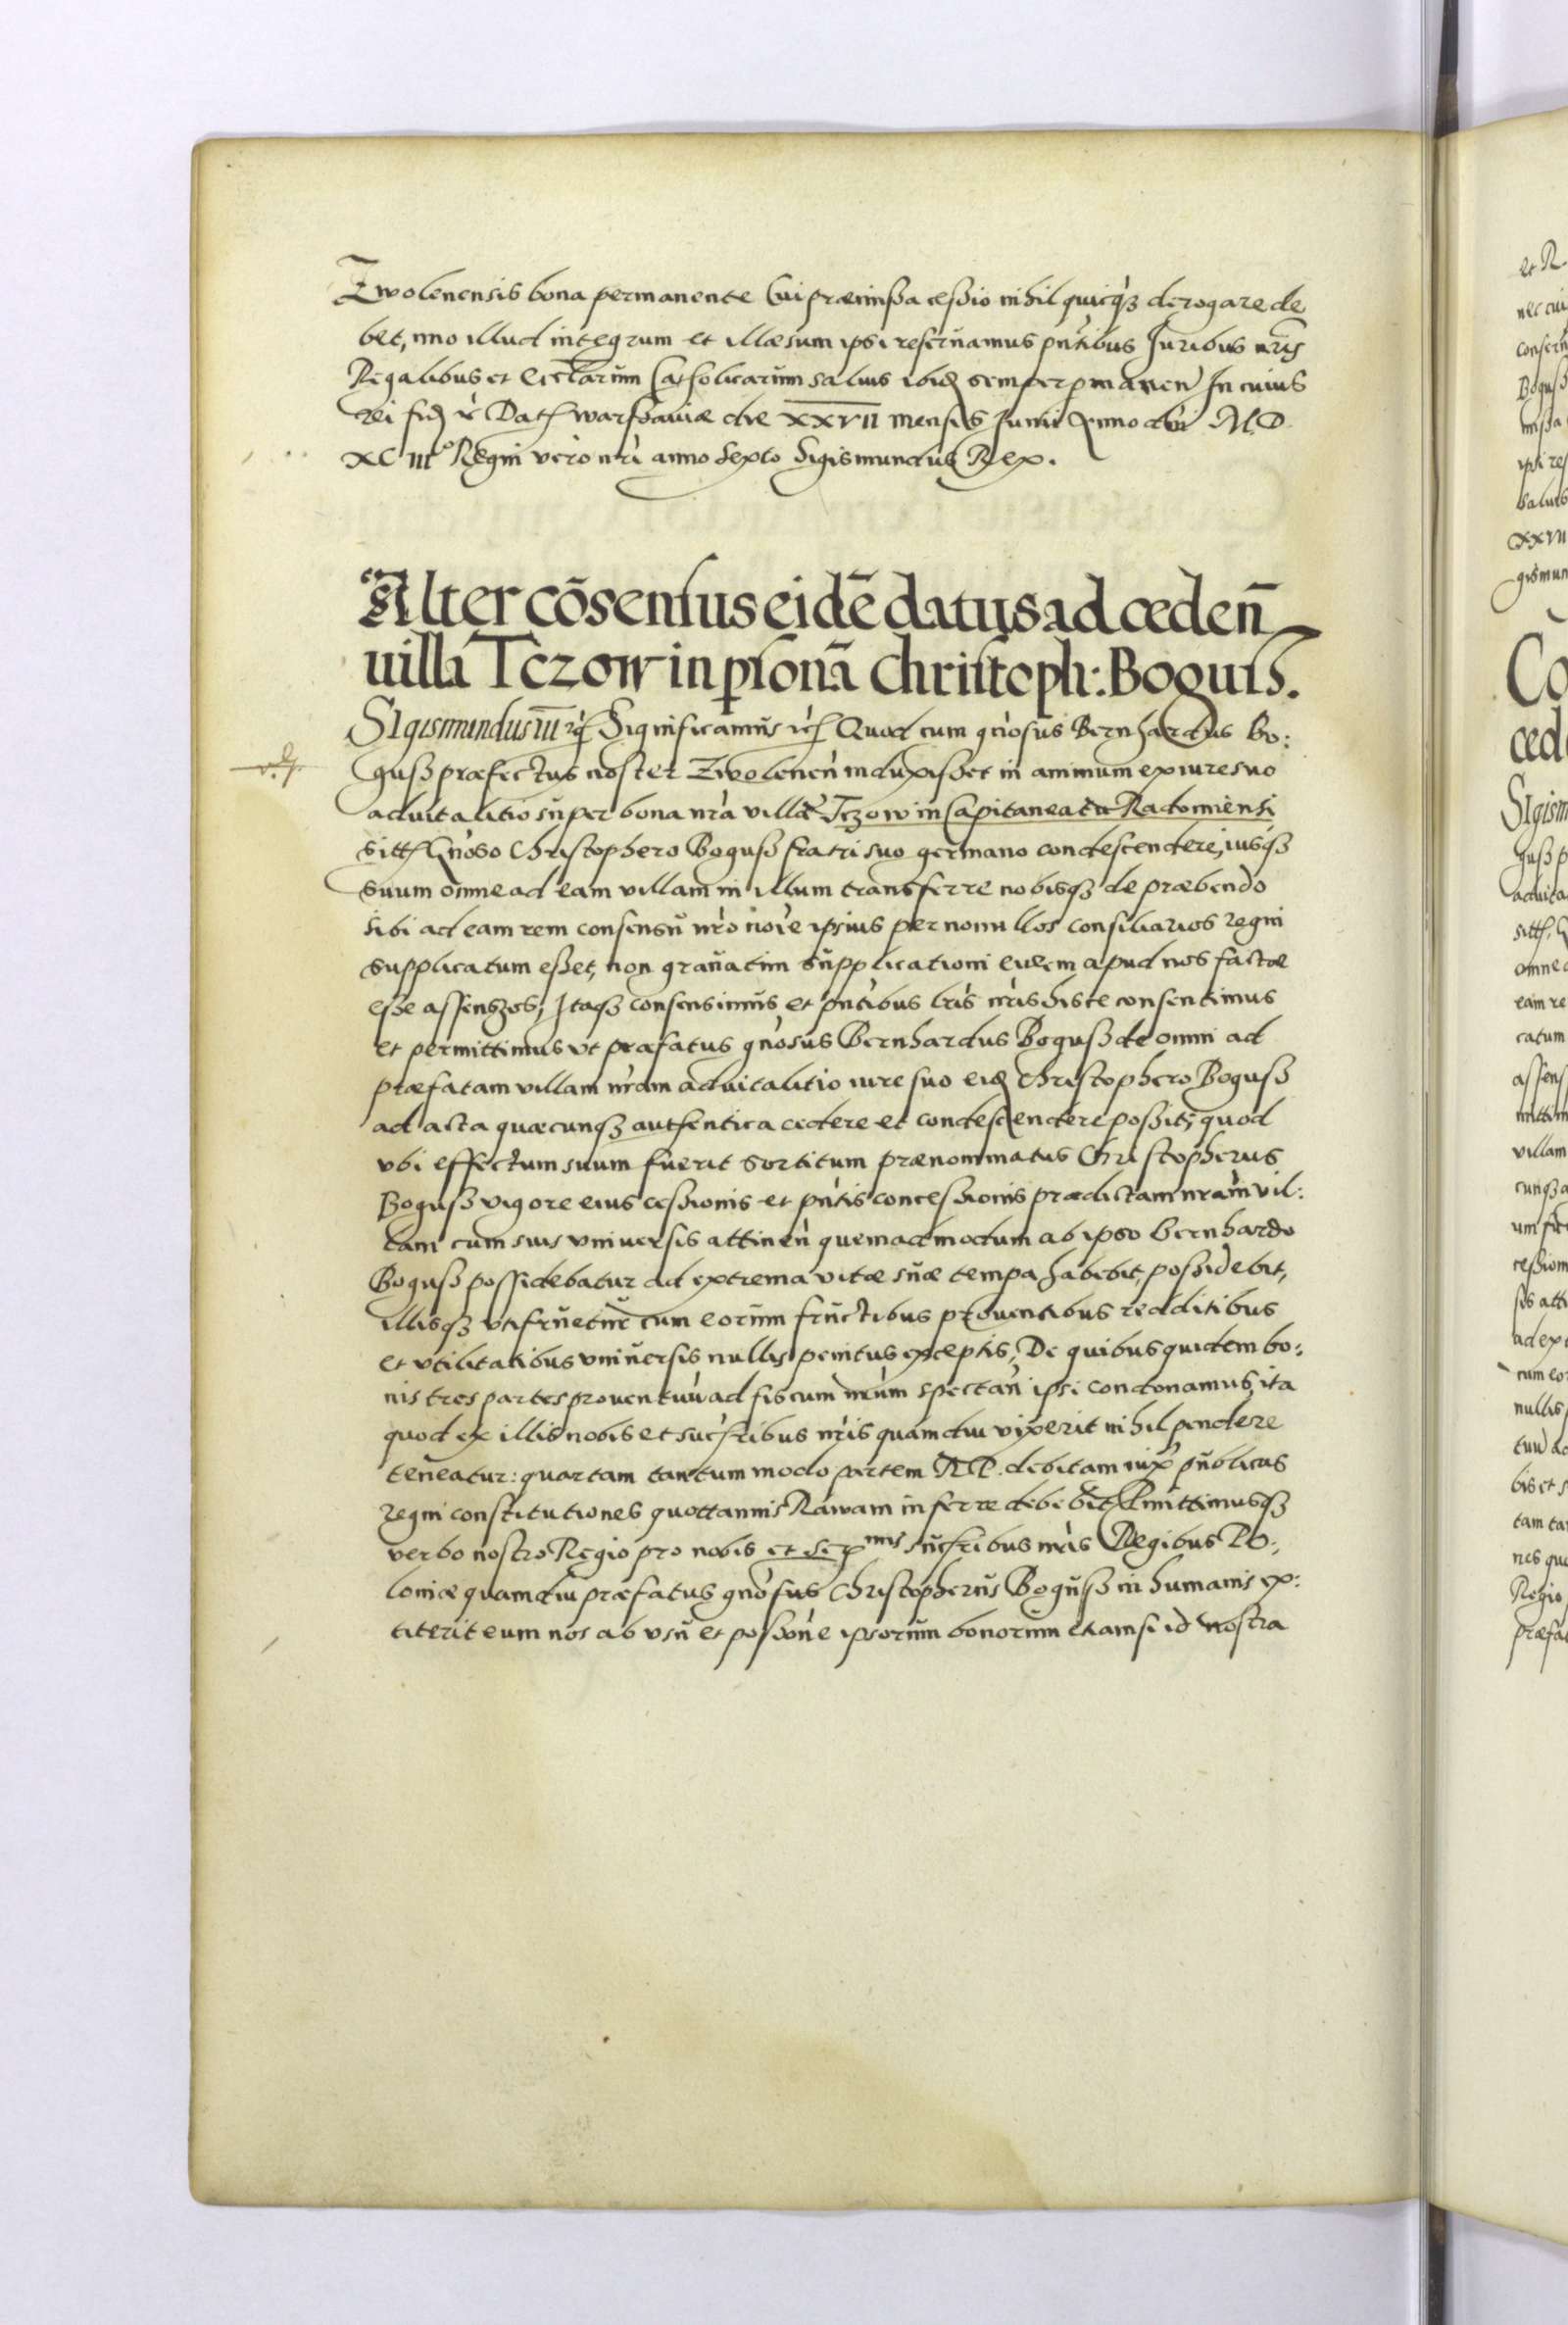 Zwolenensis bona permanente Cui præmißa ceßio nihil quicqꝫ derogare de
bet, imo illud integrum et illæsum ipsi reseruamus pñtibus Juribus nr̃is
Regalibus et Eccl̃arum Catholicarum saluis ibid semper pmaneñ In cuius
rei fid ꝛc Dat warschauiæ die XXVII mensis Junii Anno dñi M.D.
XC IIIº Regni vero nr̃i anno sexto Sigismundus Rex.
Alter cõsensus eidẽ datus ad cedeñ
uillã Tczow in p̱sonã Christoph: Bogusz.
Sigismundus III ꝛc Significamus ꝛc Quod cum gñosus Bernhardus Bo:
guß præfectus noster Zwoleneñ induxißet in animum ex iure suo
aduitalitio super bona nr̃a villæ Tczow in Capitaneatu Radomiensi
sitt Gñoso Christophero Boguß fratri suo germano condescendere, iusqꝫ
suum omne ad eam villam in illum transferre nobisqꝫ de præbendo
sibi ad eam rem consensu nr̃o noie ipsius per nonnullos consiliarios regni
supplicatum eßet, non grauatim supplicationi eidem apud nos factæ
eße assensos, Itaqꝫ consensimus et pñtibus lris nr̃is hisce consentimus
et permittimus vt præfatus gñosus Bernhardus Boguß de omni ad
præfatam villam nr̃am aduitalitio iure suo eid Christophero Boguß
ad acta quæcunqꝫ authentica cedere et condescendere poßit, quod
vbi effectum suum fuerit sortitum prænominatus Christopherus
Boguß vigore eius ceßionis et pñtis conceßionis prædictam nr̃am vil:
lam cum suis vniuersis attineñ quemadmodum ab ipso Bernhardo
Boguß possidebatur ad extrema vitæ suæ tempa habebit, poßidebit,
illisqꝫ vtifruetur cum eorum fructibus prouentibus redditibus
et vtilitatibus vniuersis nullis penitus exceptis, De quibus quidem bo:
nis tres partes prouentuũ ad fiscum nr̃um spectañ ipsi condonamus, ita
quod ex illis nobis et succribus nr̃is quamdiu vixerit nihil pendere
teneatur: quartam tantummodo partem R.P. debitam iux publicas
regni constitutiones quottannis Rawam inferre debebit Pmittimusqꝫ
verbo nostro Regio pro nobis et Ser̃mis succribus nr̃is Regibus Po:
loniæ quamdiu præfatus gñosus Christopherus Boguß in humanis ex:
titerit eum nos ab vsu et poßoñe ipsorum bonorum etiamsi id nostra